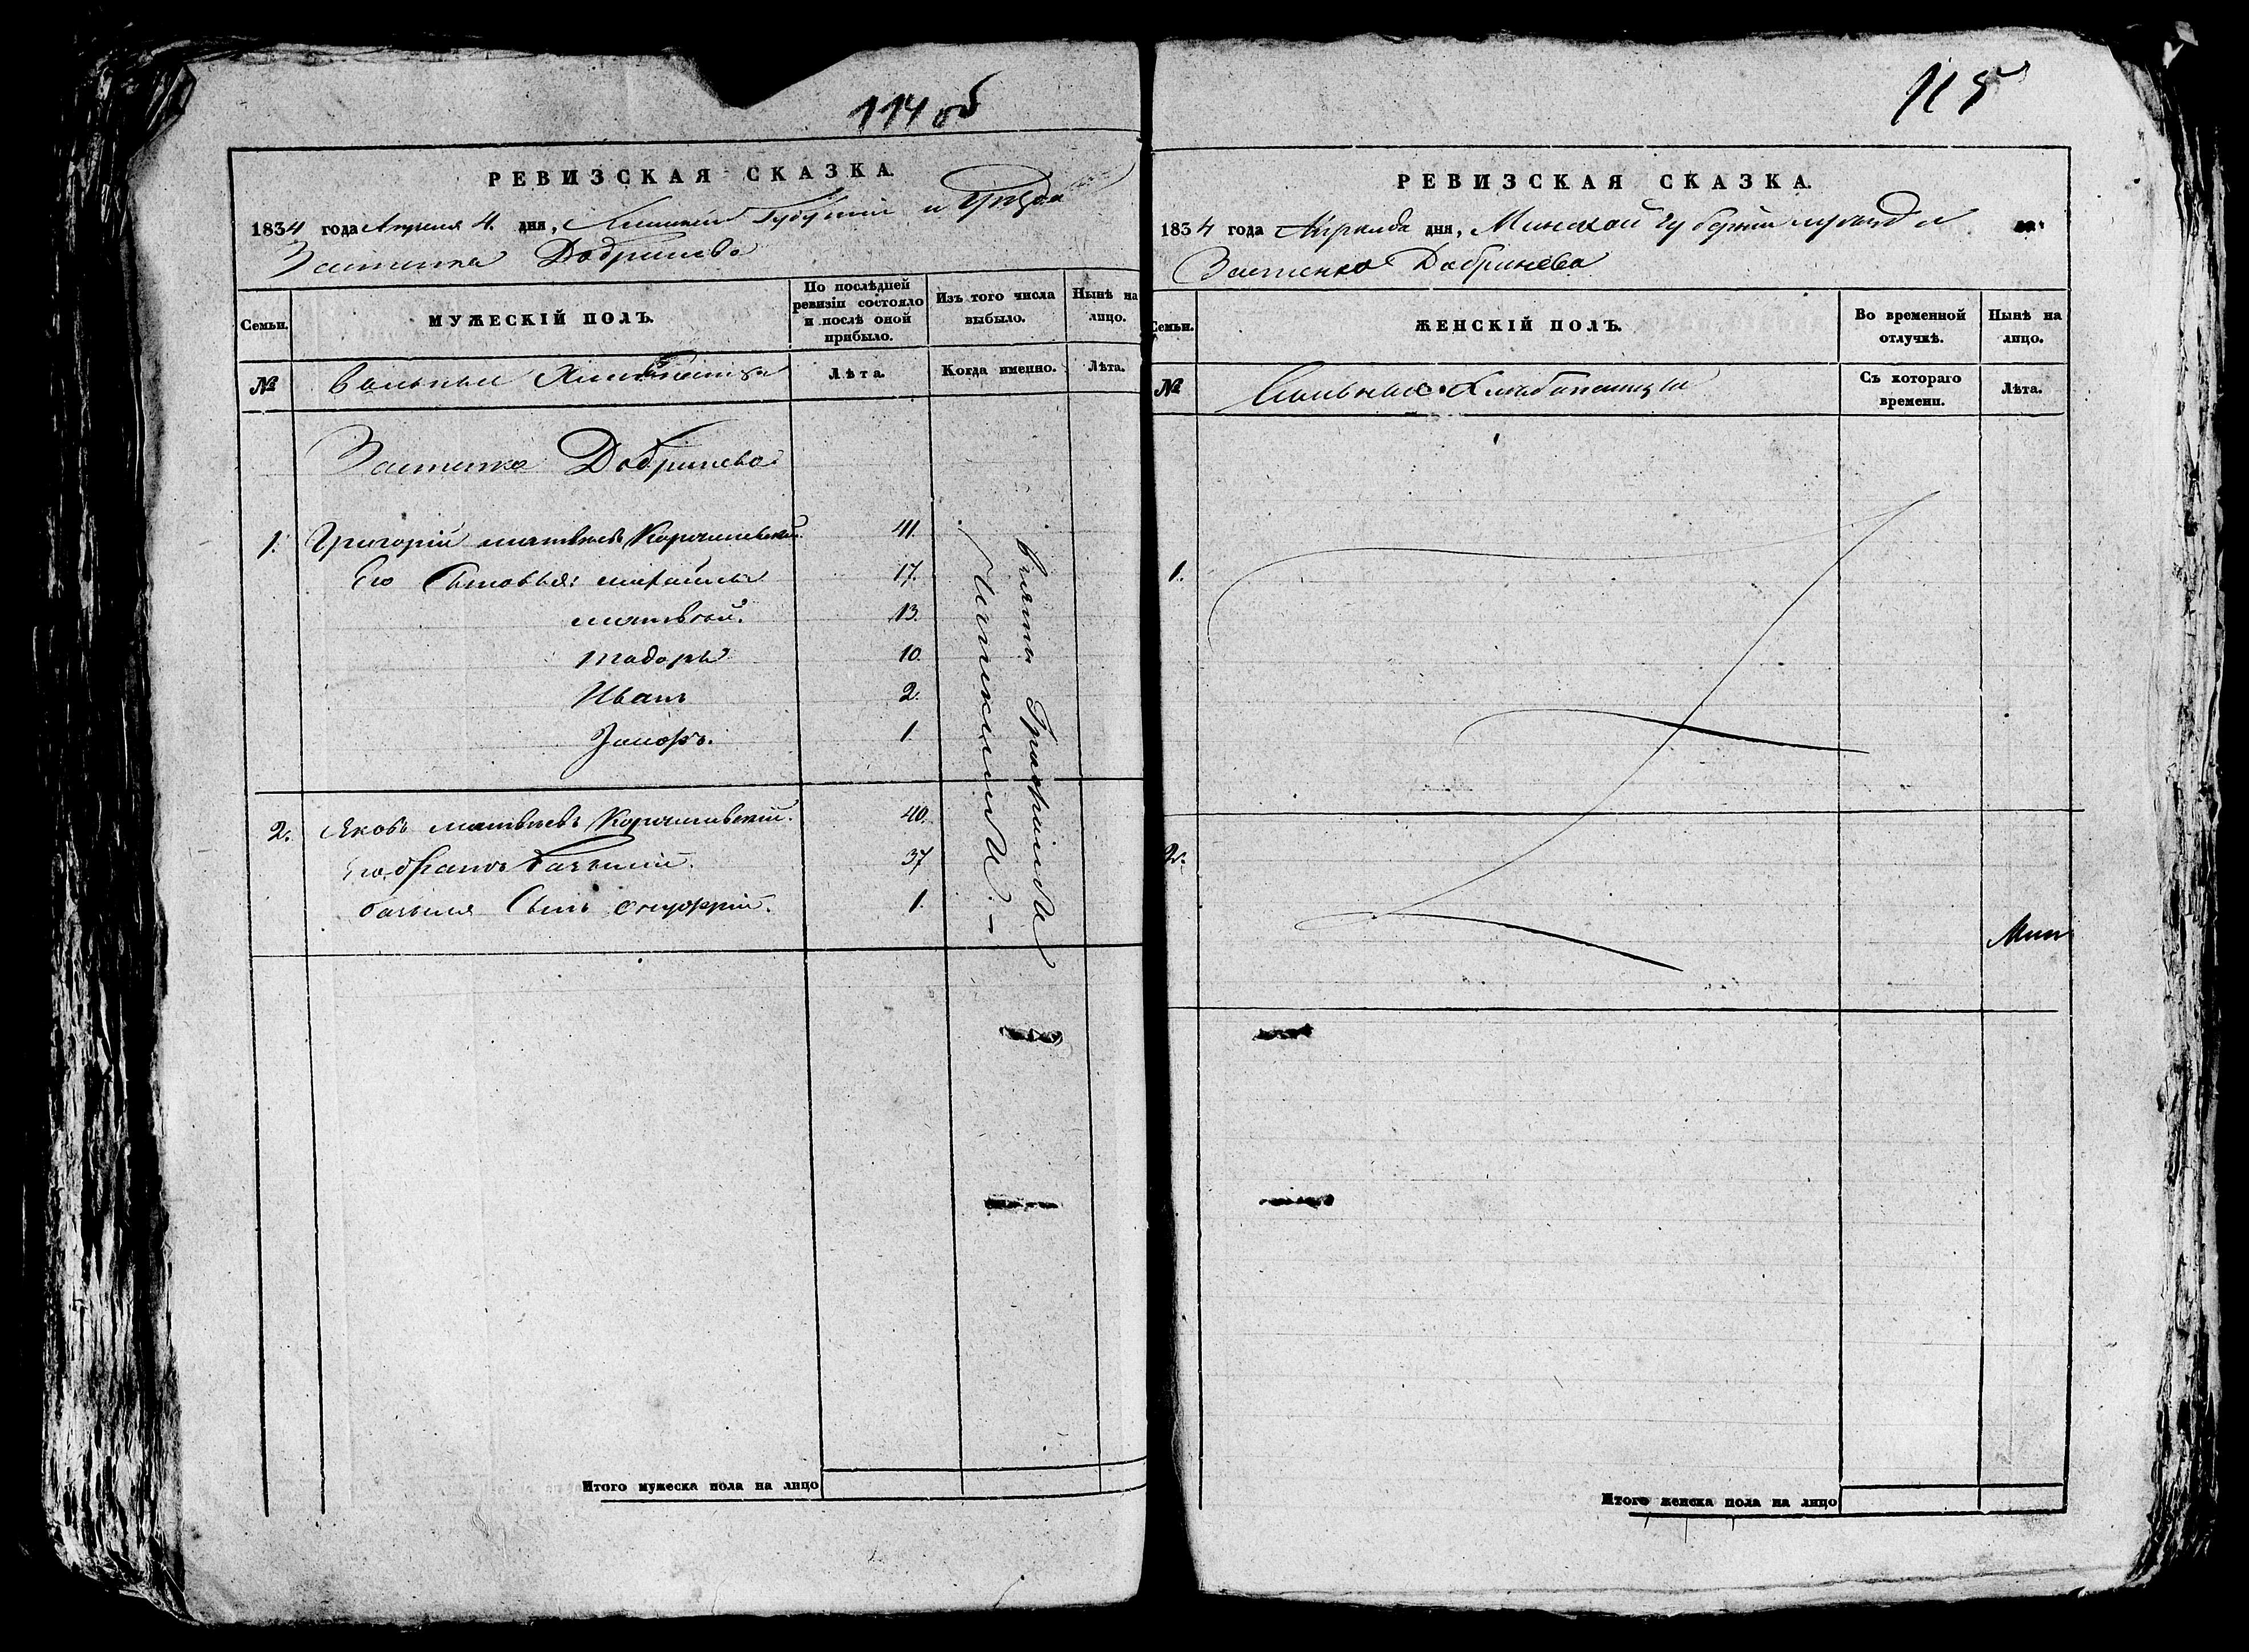 114 об
РЕВИЗСКАЯ СКАЗКА.
1834 года Апреля 4. дня, Минской Губернии и Уезда
Застенка Добринева
Семьи.
МУЖЕСКІЙ ПОЛЪ.
По послѣдней ревизіи состояло и послѣ оной прибыло.
Изъ того числа выбыло.
Нынѣ на лицо.
№
Вольные Хлебопашцы
Лѣта.
Когда именно.
Лѣта.
Застенка Добринева
1. Григорій Матвеевъ 41.
Его Сыновья: Михайла 17.
Матвей. 13.
Тодоръ 10.
Иванъ 2.
1.
2. Яковъ Матвеевъ 40.
Его братъ 37
Сынъ 1.
Итого мужеска пола на лицо
115
РЕВИЗСКАЯ СКАЗКА.
1834 года Апреля дня, Минской Губернии
Застенка Добринева
Семьи.
ЖЕНСКІЙ ПОЛЪ.
Во временной отлучкѣ.
Нынѣ на лицо.
№
Вольные Хлебопашцы
Съ котораго времени.
Лѣта.
1.
2.
Итого женска пола на лицо